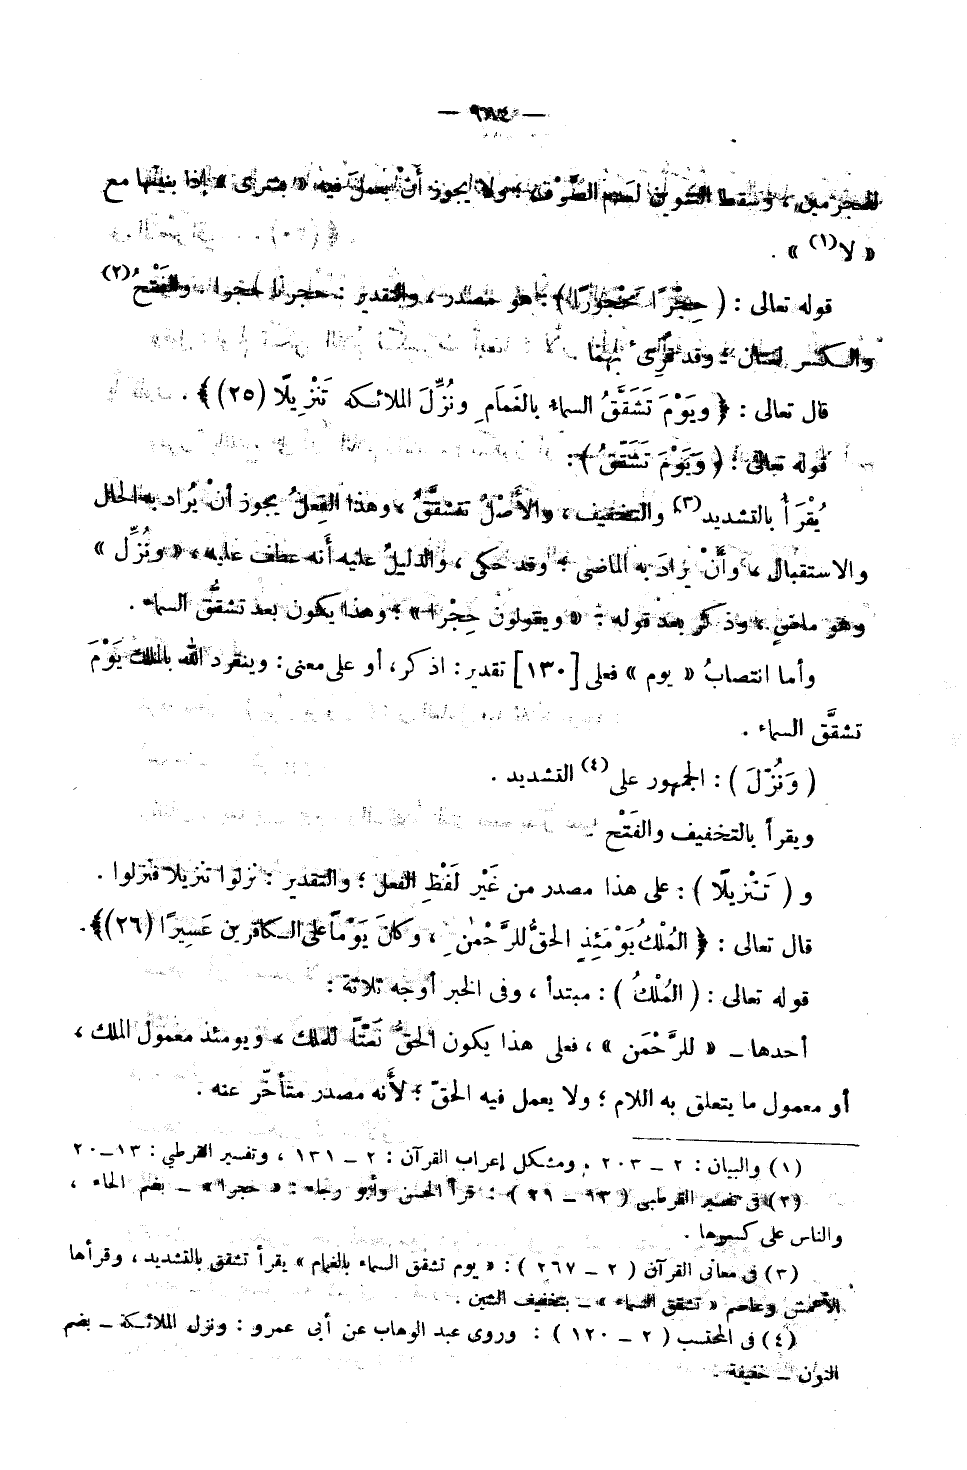 — ٩٨٤ —
للمجرمين ، وسقط التنوين لعدم الصَّرْف ، ولا يجوز أَنْ يعملَ فيه « بشرى » إذا بنيتها مع
« لا(١) » .
قوله تعالى : ( حِجْرًا مَحْجُورًا ) : هو مصدر ، والتقدير : حجرنا حجرا . والفَتْحُ(٢)
والـكسر لغتان ؛ وقد قُرِئ بهما .
قال تعالى : ﴿ ويَوْمَ تَشَقَّقُ السماءُ بالغَمَامِ ونُزِّلَ الملائـكة تَنْزِيلًا (٢٥) ﴾ .
قوله تعالى : ( وَيَوْمَ تَشَقَّقُ ) :
يُقْرَأُ بالتشديد(٣) والتخفيف ، والأَصْلُ تتشقَّقُ ، وهذا الفِعلُ يجوز أنْ يُراد به الحال
والاستقبال ، وأَنْ يرادَ به الماضى ؛ وقد حكى ، والدليلُ عليه أَنه عطف عليه ، « ونُزِّل »
وهو ماضٍ ، وذكر بعد قوله : « ويقولون حِجْرا » ؛ وهذا يكون بعد تشقُّق السماء .
وأما انتصابُ « يوم » فعلى [١٣٠] تقدير : اذكر ، أو على معنى : وينفرد الله بالملك يَوْمَ
تشقَّق السماء .
( وَنُزِّلَ ) : الجمهور على(٤) التشديد .
ويقرأ بالتخفيف والفَتْح .
و ( تَنْزِيلًا ) : على هذا مصدر من غَيْر لَفْظِ الفعل ؛ والتقدير : نزلوا تنزيلا فنزلوا .
قال تعالى : ﴿ المُلْكُ يَوْمَئِذٍ الحقُّ للرَّحْمٰنِ ، وكانَ يَوْمًا على الـكافرين عَسِيرًا (٢٦)﴾ .
قوله تعالى : ( المُلْكُ ) : مبتدأ ، وفى الخبر أوجه ثلاثة :
أحدها – « للرَّحْمَن » ، فعلى هذا يكون الحقُّ نَعْتًا للملك ، ويومئذ معمول الملك ،
أو معمول ما يتعلق به اللام ؛ ولا يعمل فيه الحقّ ؛ لأَنه مصدر متأخّر عنه .
(١) والبيان : ٢ – ٢٠٣ ، ومشكل إعراب القرآن : ٢ – ١٣١ ، وتفسير القرطبي : ١٣–٢٠
(٢) فى تفسير القرطبى ( ١٣ – ٢١ ) : قرأ الحسن وأبو رجاء : « حجرا » – بضم الحاء ،
والناس على كسرها .
(٣) فى معانى القرآن ( ٢ – ٢٦٧ ) : « يوم تشقق السماء بالغمام » يقرأ تشقق بالتشديد ، وقرأها
الأعمش وعاصم « تشقق السماء » – بتخفيف الشين .
(٤) فى المحتسب ( ٢ – ١٢٠ ) : وروى عبد الوهاب عن أبى عمرو : ونزل الملائـكة – بضم
النون – خفيفة .